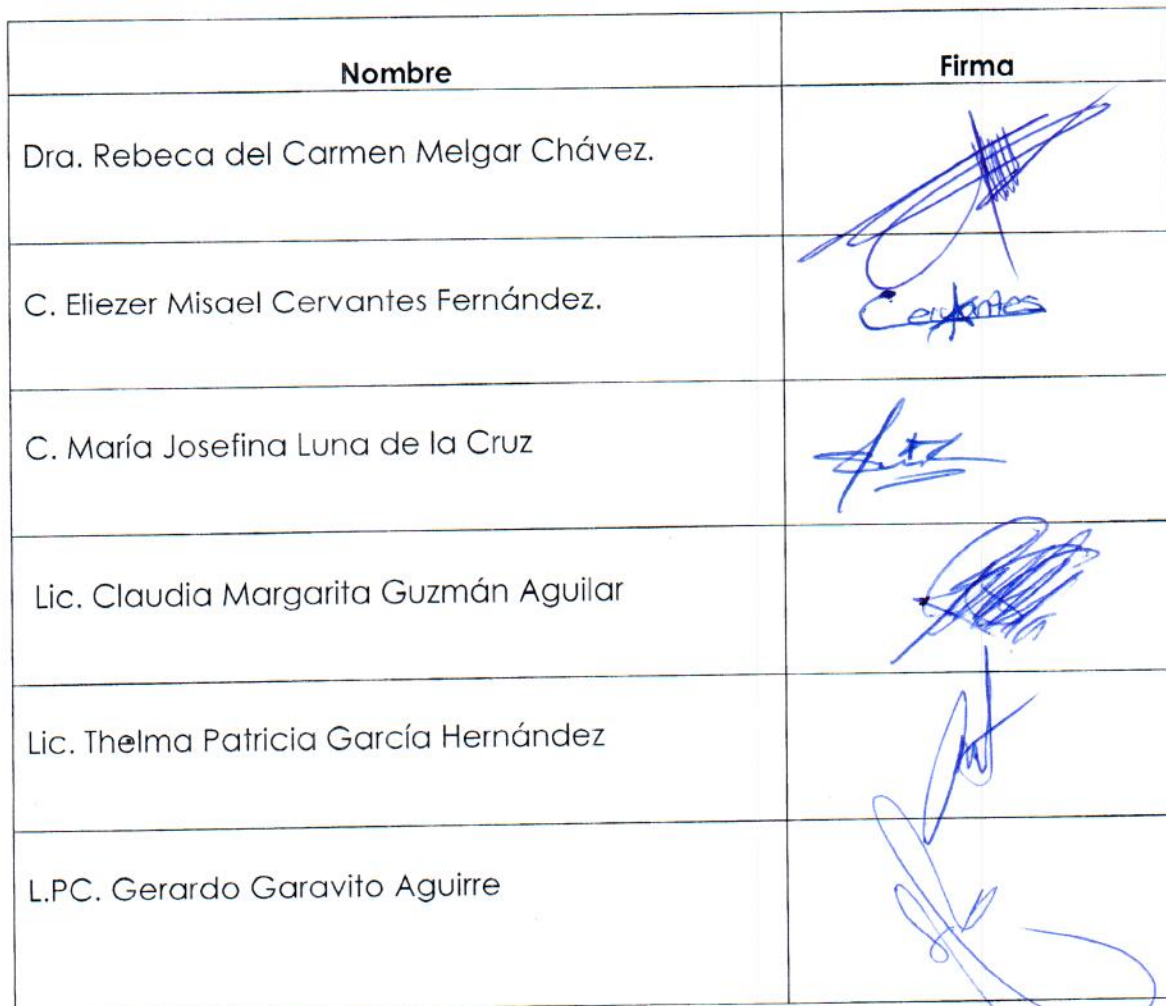 Nombre Firma
Dra. Rebeca del Carmen Melgar Chávez.
C. Eliezer Misael Cervantes Fernández.
Cervantes
C. María Josefina Luna de la Cruz
Lic. Claudia Margarita Guzmán Aguilar
Lic. Thelma Patricia García Hernández
L.PC. Gerardo Garavito Aguirre